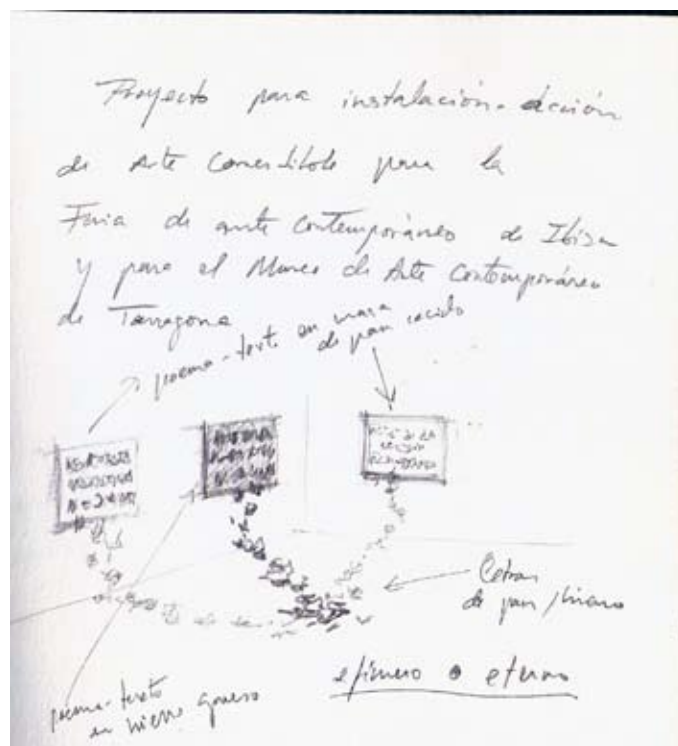 Proyecto para instalación-acción
de Arte Comestible para la
Feria de arte contemporáneo de Ibiza
y para el Museo de Arte Contemporáneo
de Tarragona
poema-texto en masa
de pan cocido
Letras
de pan/hierro
poema-texto
en hierro grueso
efímero o eterno